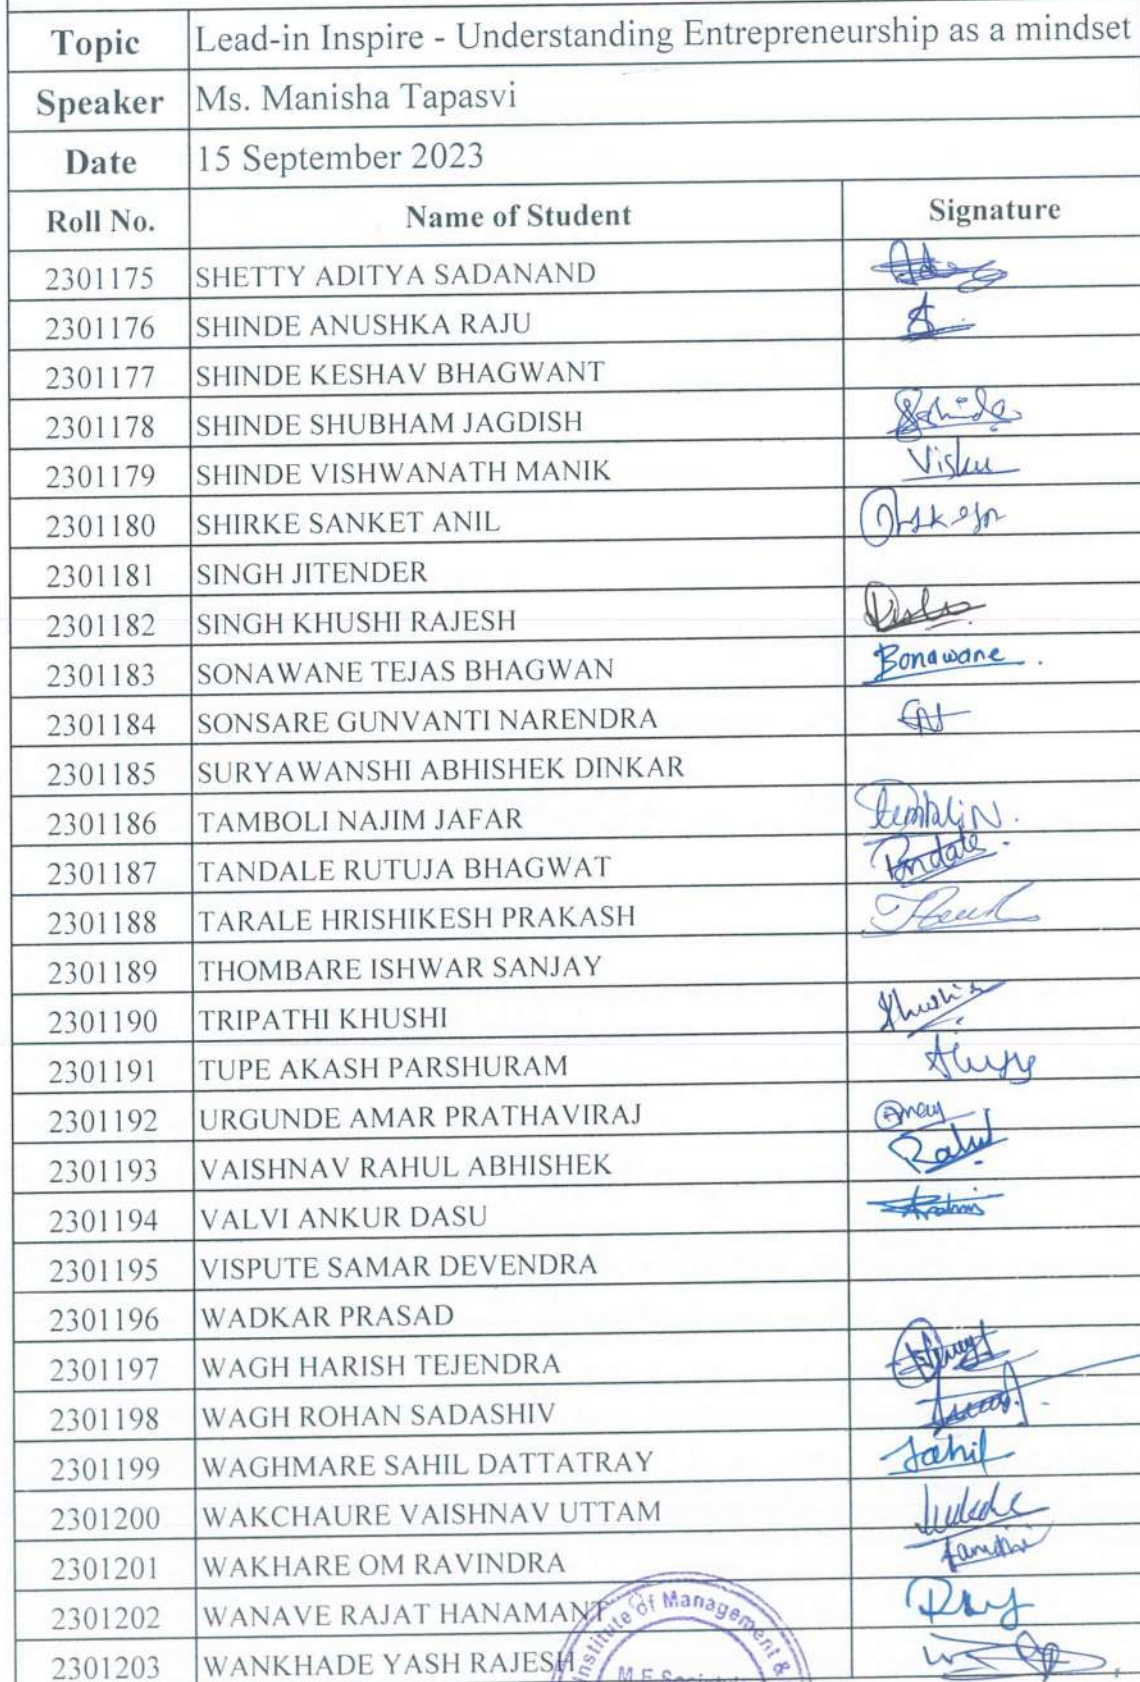 Topic Lead-in Inspire - Understanding Entrepreneurship as a mindset
Speaker Ms. Manisha Tapasvi
Date 15 September 2023
Roll No. Name of Student Signature
2301175 SHETTY ADITYA SADANAND
2301176 SHINDE ANUSHKA RAJU
2301177 SHINDE KESHAV BHAGWANT
2301178 SHINDE SHUBHAM JAGDISH Sshinde
2301179 SHINDE VISHWANATH MANIK Vishu
2301180 SHIRKE SANKET ANIL
2301181 SINGH JITENDER
2301182 SINGH KHUSHI RAJESH
2301183 SONAWANE TEJAS BHAGWAN Bonawane.
2301184 SONSARE GUNVANTI NARENDRA
2301185 SURYAWANSHI ABHISHEK DINKAR
2301186 TAMBOLI NAJIM JAFAR
2301187 TANDALE RUTUJA BHAGWAT Tandale
2301188 TARALE HRISHIKESH PRAKASH
2301189 THOMBARE ISHWAR SANJAY
2301190 TRIPATHI KHUSHI Khushi
2301191 TUPE AKASH PARSHURAM
2301192 URGUNDE AMAR PRATHAVIRAJ
2301193 VAISHNAV RAHUL ABHISHEK Rahul
2301194 VALVI ANKUR DASU
2301195 VISPUTE SAMAR DEVENDRA
2301196 WADKAR PRASAD
2301197 WAGH HARISH TEJENDRA
2301198 WAGH ROHAN SADASHIV
2301199 WAGHMARE SAHIL DATTATRAY Sahil
2301200 WAKCHAURE VAISHNAV UTTAM
2301201 WAKHARE OM RAVINDRA
2301202 WANAVE RAJAT HANAMANT
Institute of Management &
2301203 WANKHADE YASH RAJESH
M.E.